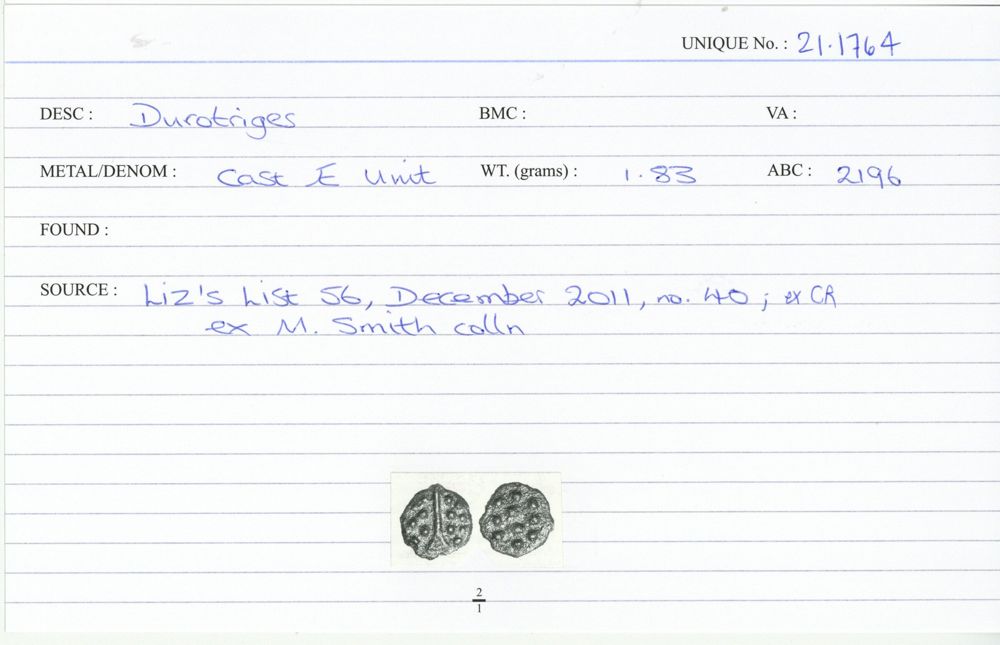 UNIQUE No. : 21.1764
DESC : Durotriges BMC : VA :
METAL/DENOM : Cast Æ Unit WT. (grams) : 1.83 ABC : 2196
FOUND :
SOURCE : Liz's List 56, December 2011, no. 40 ; ex CR
ex M. Smith colln
2
1